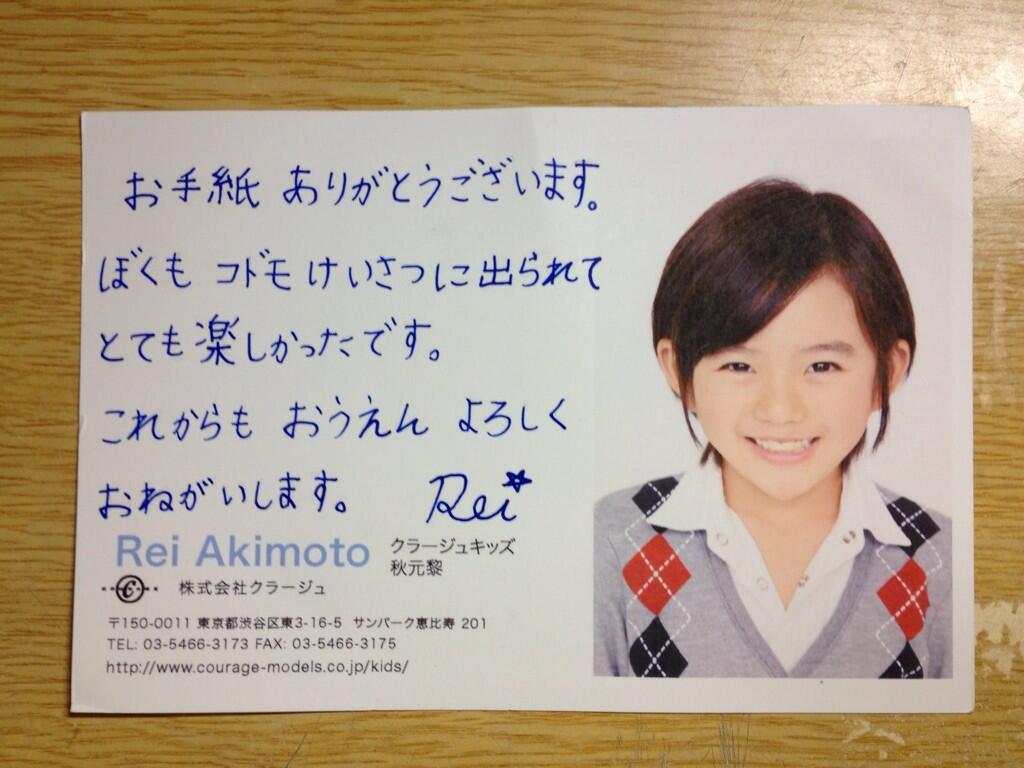 お手紙 ありがとうございます。
ぼくも コドモけいさつに出られて
とても楽しかったです。
これからも おうえん よろしく
おねがいします。 Rei
Rei Akimoto クラージュキッズ
秋元黎
株式会社クラージュ
〒150-0011 東京都渋谷区東3-16-5 サンパーク恵比寿 201
TEL: 03-5466-3173 FAX: 03-5466-3175
http://www.courage-models.co.jp/kids/